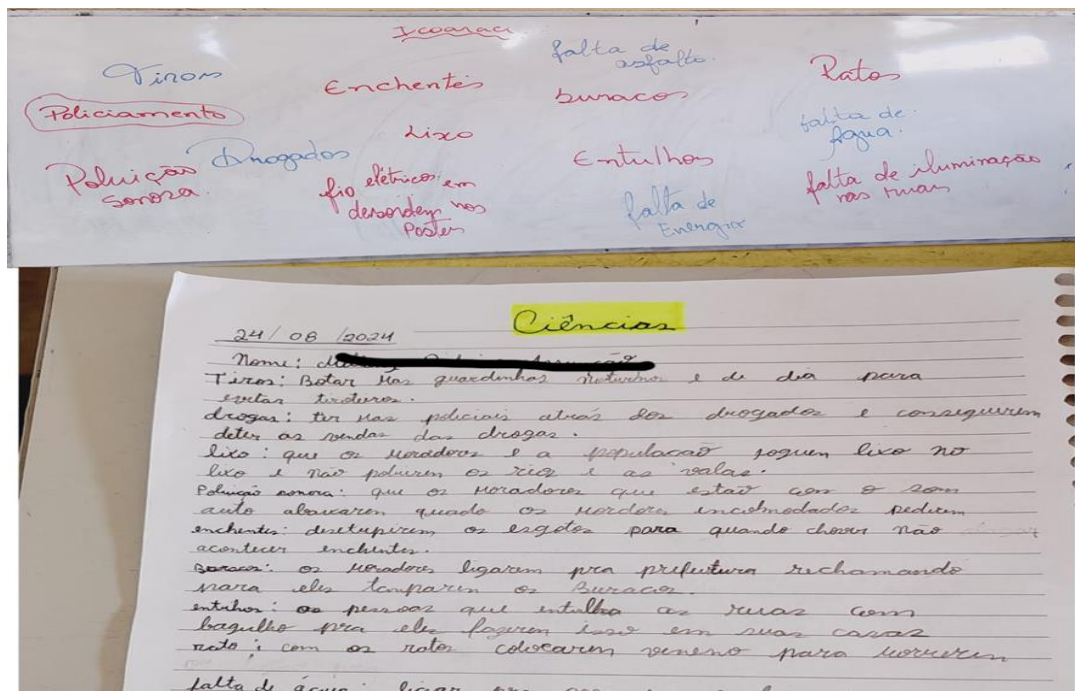 Icoaraci
Tiros
Enchentes
falta de
asfalto.
Ratos
Policiamento
Lixo
buracos
falta de
Água.
Poluição
sonora.
Drogados
fio elétricos em
desordem nos
Postes
Entulhos
falta de
Energia
falta de iluminação
nas ruas
24/08/2024
Ciências
Nome:
Tiros: Botar mas guardinhas noturnos e de dia para
evitar tiroteros.
drogas: ter mas policiais atrás dos drogados e conseguirem
deter as vendas das drogas.
lixo: que os moradores e a populacaõ joguem lixo no
lixo e naõ poluirem os rios e as valas.
Poluiçaõ sonora: que os moradores que estaõ com o som
auto abaixarem quado os mordores incolmodados pedirem
enchentes: disetupirem os esgotos para quando chover naõ
acontecer enchentes.
Buracos: os moradores ligarem pra prefeitura rechamando
para eles tamparem os Buracos.
entulhos: as pessoas que entulha as ruas com
bagulho pra eles fazerem isso em suas casas
rato: com os ratos colocarem veneno para morrerem
falta de água: ligar pra